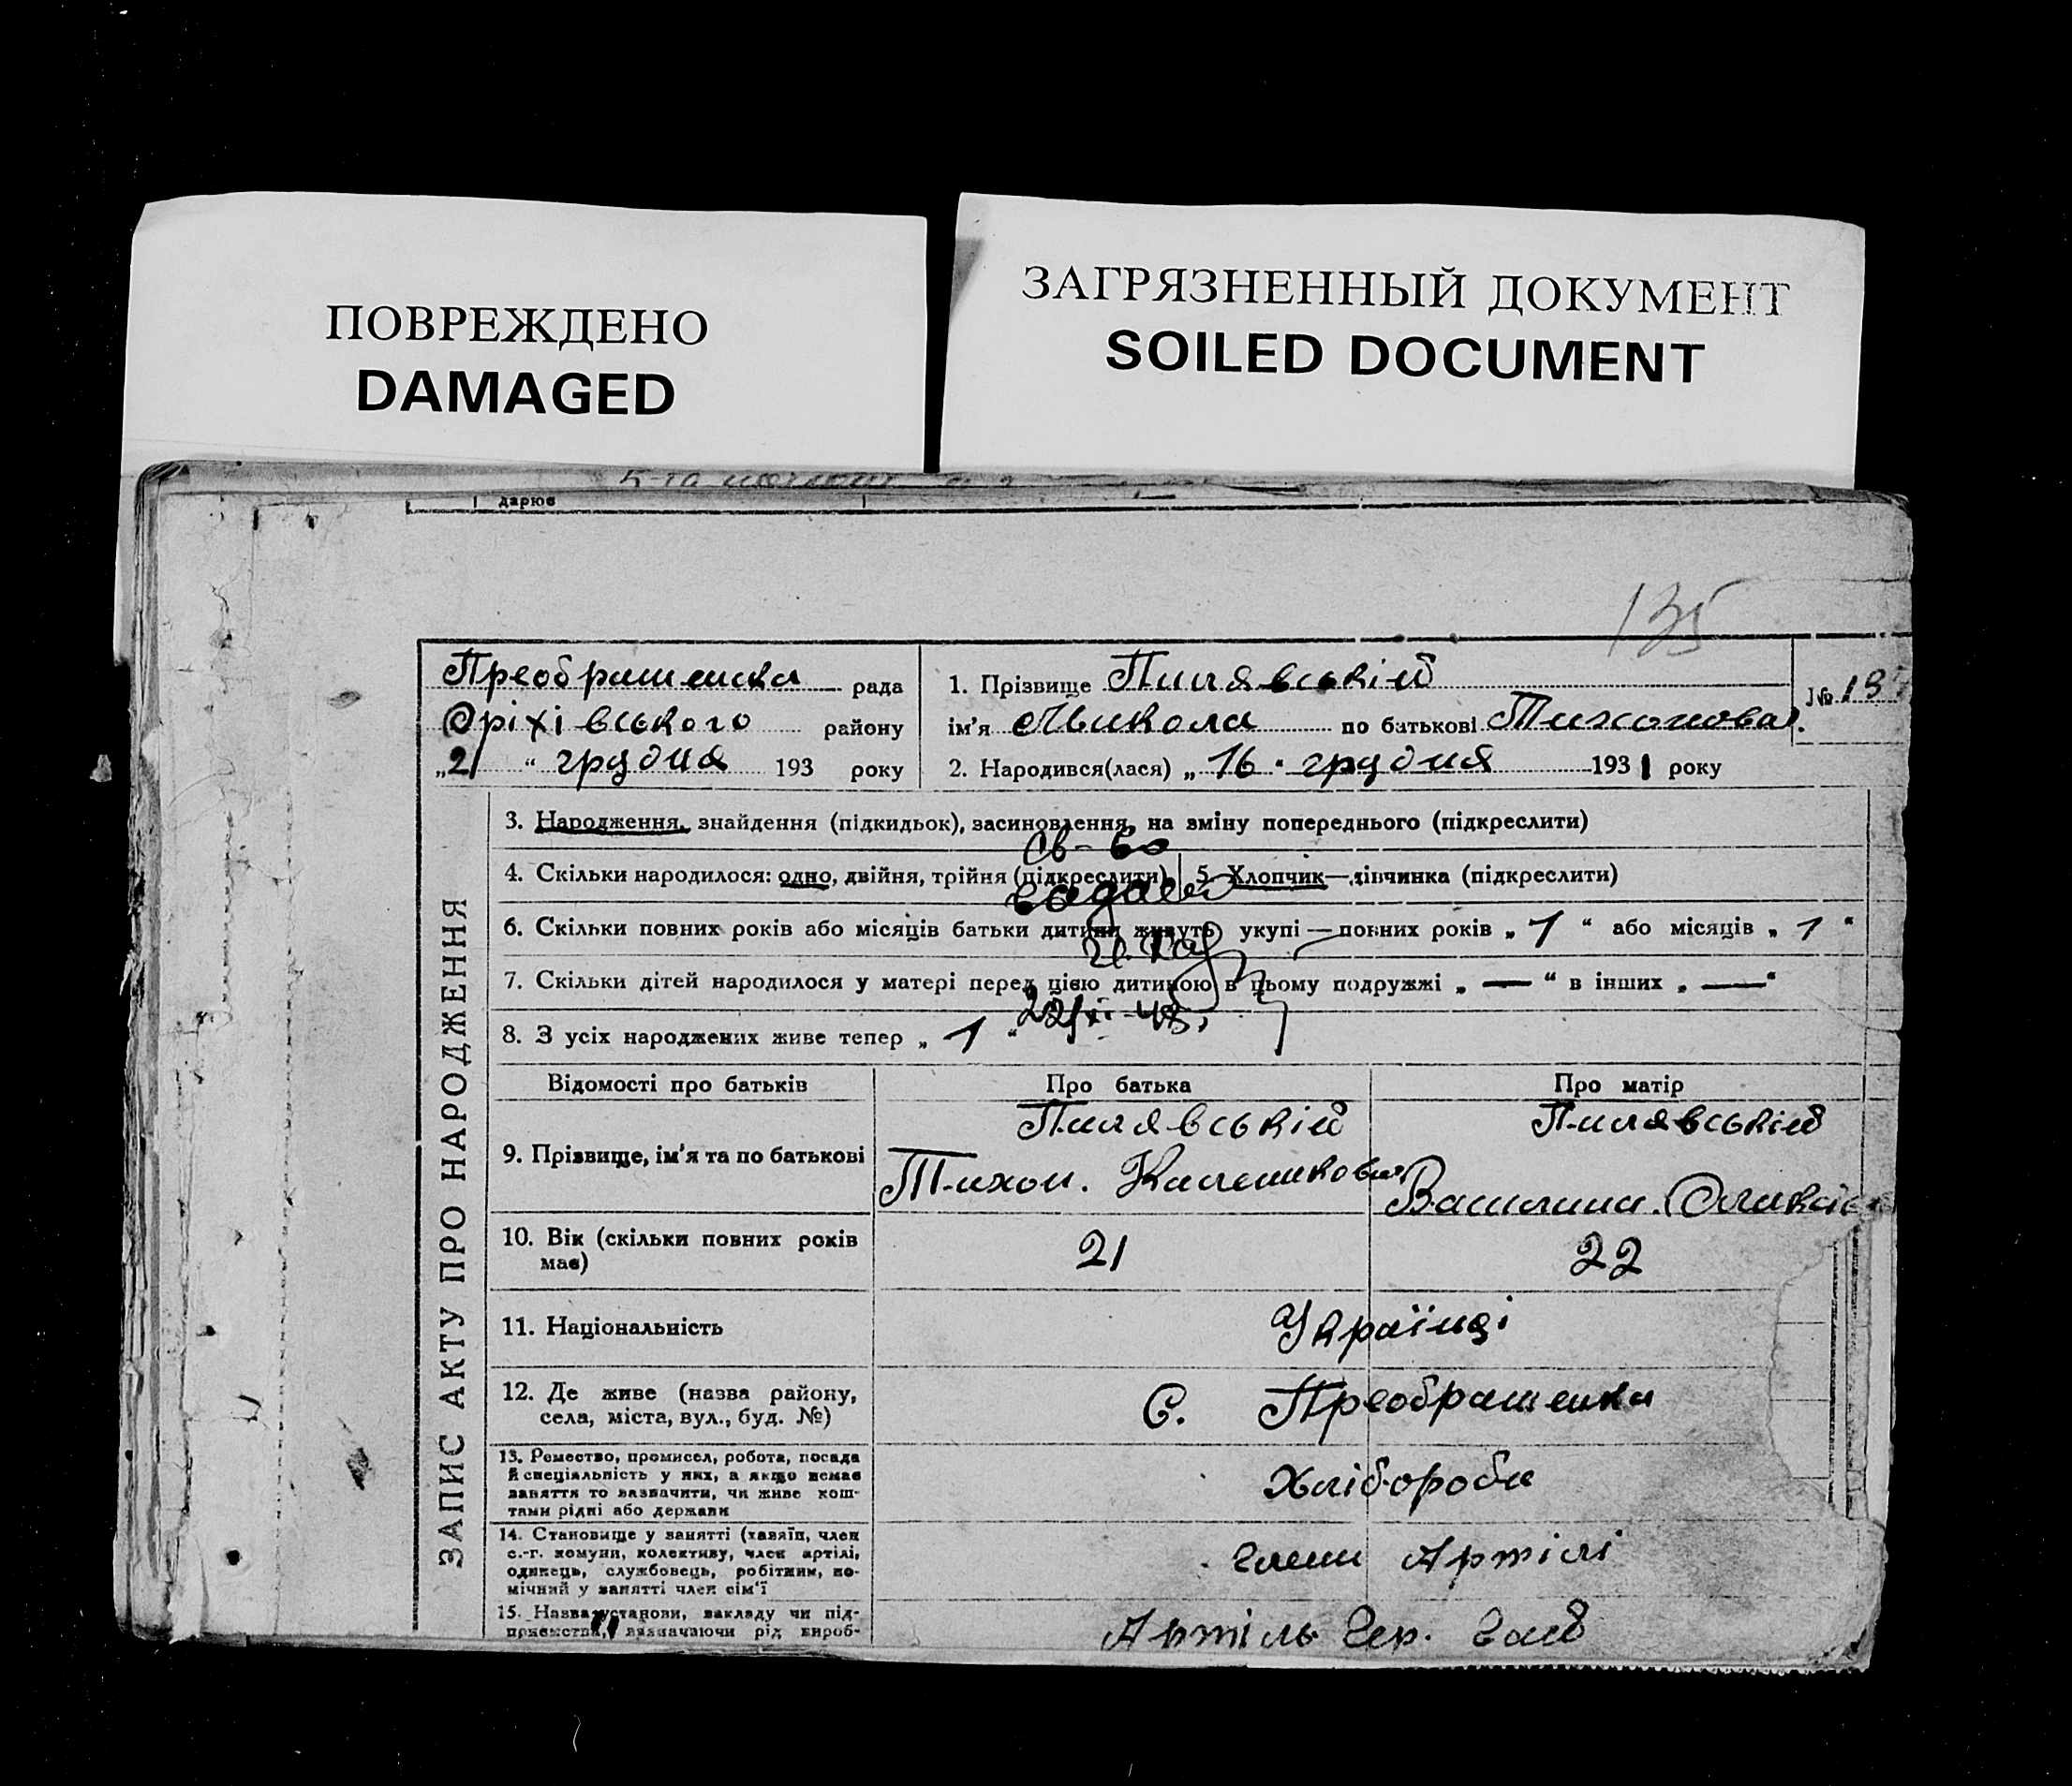 ПОВРЕЖДЕНО
DAMAGED
ЗАГРЯЗНЕННЫЙ ДОКУМЕНТ
SOILED DOCUMENT
дарює
135
Преображенка рада
Оріхівського району
„21 “ грудня 193 року
1. Прізвище Пилявській
ім'я Микола по батькові Тихонова
2. Народився(лася) „ 16 “ грудня 1931 року
№
ЗАПИС АКТУ ПРО НАРОДЖЕННЯ
3. Народження, знайдення (підкидьок), засиновлення, на зміну попереднього (підкреслити)
4. Скільки народилося: одно, двійня, трійня (підкреслити)
5. Хлопчик—дівчинка (підкреслити)
6. Скільки повних років або місяців батьки дитини живуть укупі — повних років „ 1 “ або місяців „ 1 “
7. Скільки дітей народилося у матері перед цією дитиною в цьому подружжі „ — “ в інших „ — “
8. З усіх народжених живе тепер „ 1 “
Св-во
Відомості про батьків Про батька Про матір
9. Прізвище, ім'я та по батькові
Пилявській
Тихон.
Пилявській
Василина.
10. Вік (скільки повних років має)
21 22
11. Національність
Українці
12. Де живе (назва району,
села, міста, вул., буд. №)
С. Преображенка
13. Ремество, промисел, робота, посада
й спеціяльність у них, а якщо немає
заняття то зазначити, чи живе кош-
тами рідні або держави
Хлібороби
14. Становище у занятті (хазяїн, член
с.-г. комуни, колективу, член артілі,
одинець, службовець, робітник, по-
мічний у занятті член сім'ї
члени Артілі
15. Назва установи, закладу чи під-
приємства, зазначаючи рід вироб-
Артіль Чер.